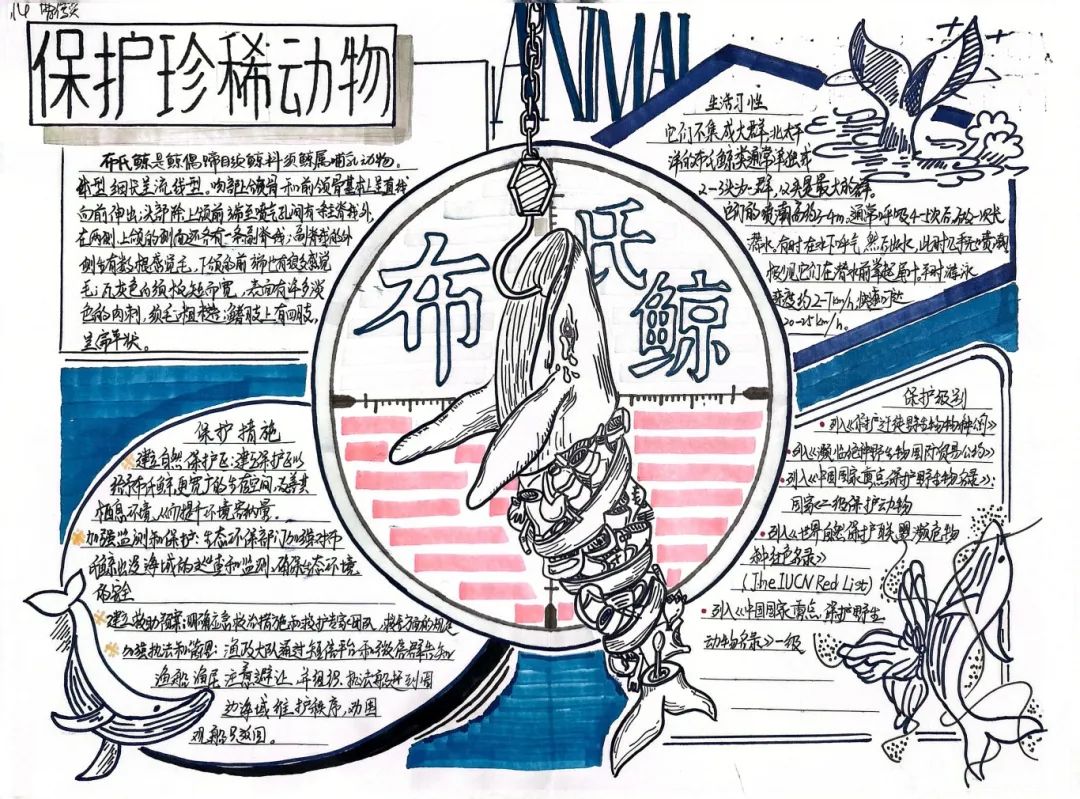 保护珍稀动物
ANIMAL
布氏鲸
布氏鲸是鲸偶蹄目须鲸科须鲸属哺乳动物。
体型细长呈流线型。吻部上颌骨和前颌骨基本上呈直线
向前伸出;头部除上颌前端至喷气孔间有一条主脊线外,
在两侧上颌的侧面还各有一条副脊线;副脊线的外
侧各有数根感觉毛,下颌的前端也有很多感觉
毛;灰色的须板短而宽,表面有许多淡
色的肉刺,须毛粗糙;鳍肢上有四肢,
呈扁平状。
生活习性
它们不集成大群,北太平
洋的布氏鲸类通常单独或
2-3头为一群,12头是最大的群。
它们的喷潮高约3-4m,通常呼吸4-5次后有一次长
潜水,有时在水下呼气,然后出水,此时几乎无喷潮
极少见它们在潜水前举起尾叶,平时游泳
速度约2-7km/h,快速可达
20-25km/h。
保护措施
建立自然保护区:建立保护区以
给予布氏鲸更宽广的生存空间,改善其
栖息环境,从而提升环境容纳量。
加强监测和保护:生态环保部门加强对布
氏鲸出没海域的巡查和监测,确保生态环境
安全
建立救助预案:明确应急救助措施和救护专家团队
加强执法和管理:渔政大队通过短信平台和微信群告知
渔船渔民注意避让,并组织执法船艇到周
边海域维护秩序,劝围
观船只返回。
保护级别
列入《保护迁徙野生动物物种公约》
《濒临绝种野生动物国际贸易公约》
列入《中国国家重点保护野生动物名录》:
国家二级保护动物
列入《世界自然保护联盟濒危物
种红色名录》
(The IUCN Red List)
列入《中国国家重点保护野生
动物名录》一级